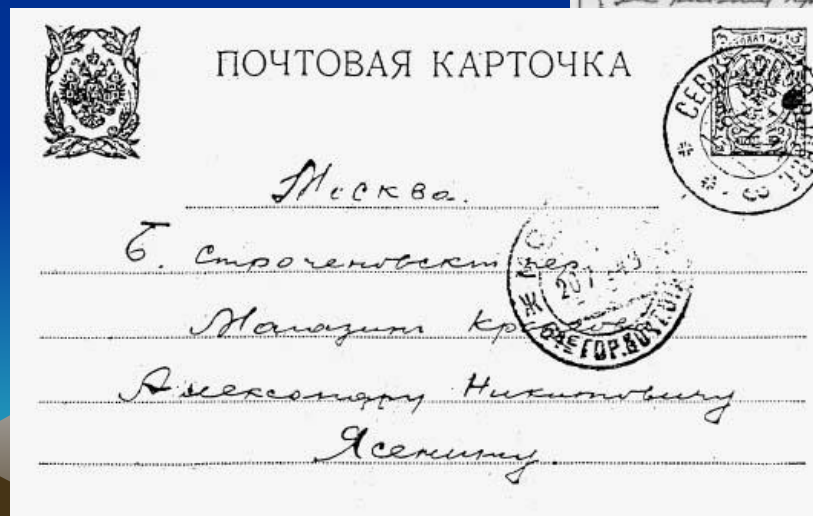 ПОЧТОВАЯ КАРТОЧКА
Москва.
Б. Строченовский пер
Магазин Крылова
Александру Никитовичу
Ясенину
СЕВАСТОПОЛЬ
6ОЕ ГОР. ПОЧТ. ОТД